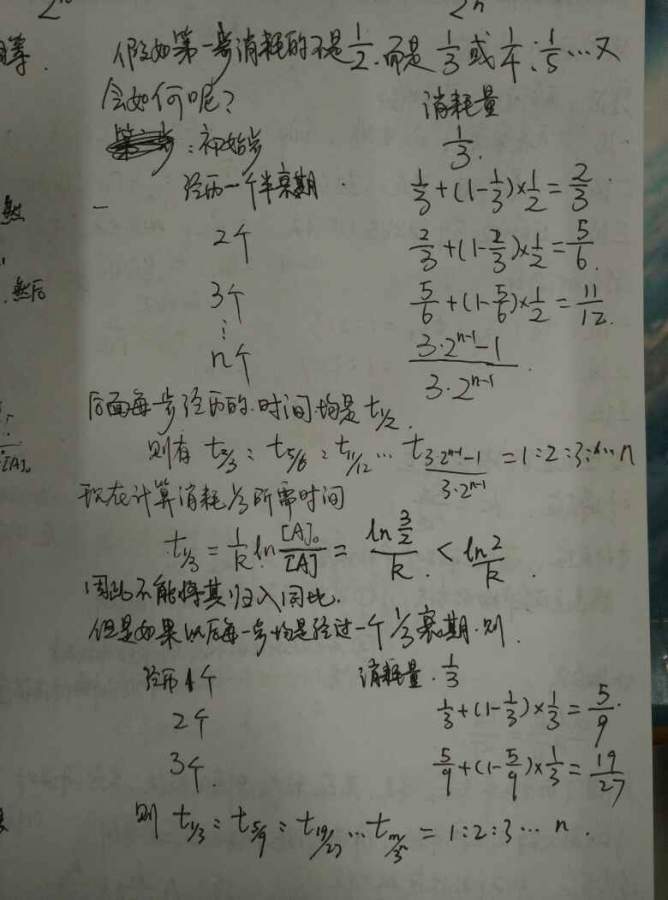 2ⁿ
假如第一步消耗的不是1/2.而是1/3或1/4、1/5…又
会如何呢? 消耗量
:初始步 1/3.
经历一个半衰期. 1/3+(1-1/3)×1/2=2/3
2个 2/3+(1-2/3)×1/2=5/6.
3个 5/6+(1-5/6)×1/2=11/12
⋮
n个 (3·2ⁿ⁻¹-1)/(3·2ⁿ⁻¹)
后面每一步经历的时间均是t1/2.
则有 t2/3:t5/6:t11/12…t(3·2ⁿ⁻¹-1)/(3·2ⁿ⁻¹)=1:2:3:…n
现在计算消耗1/3所需时间
t1/3=1/k ln [A]₀/[A]=(ln 3/2)/k.<(ln2)/k.
因此不能将其归入同比.
但是如果以后每一步均是经过一个1/3衰期.则.
经历1个 消耗量.1/3
2个 1/3+(1-1/3)×1/3=5/9.
3个 5/9+(1-5/9)×1/3=19/27
则 t1/3:t5/9:t19/27…=1:2:3…n.
然后